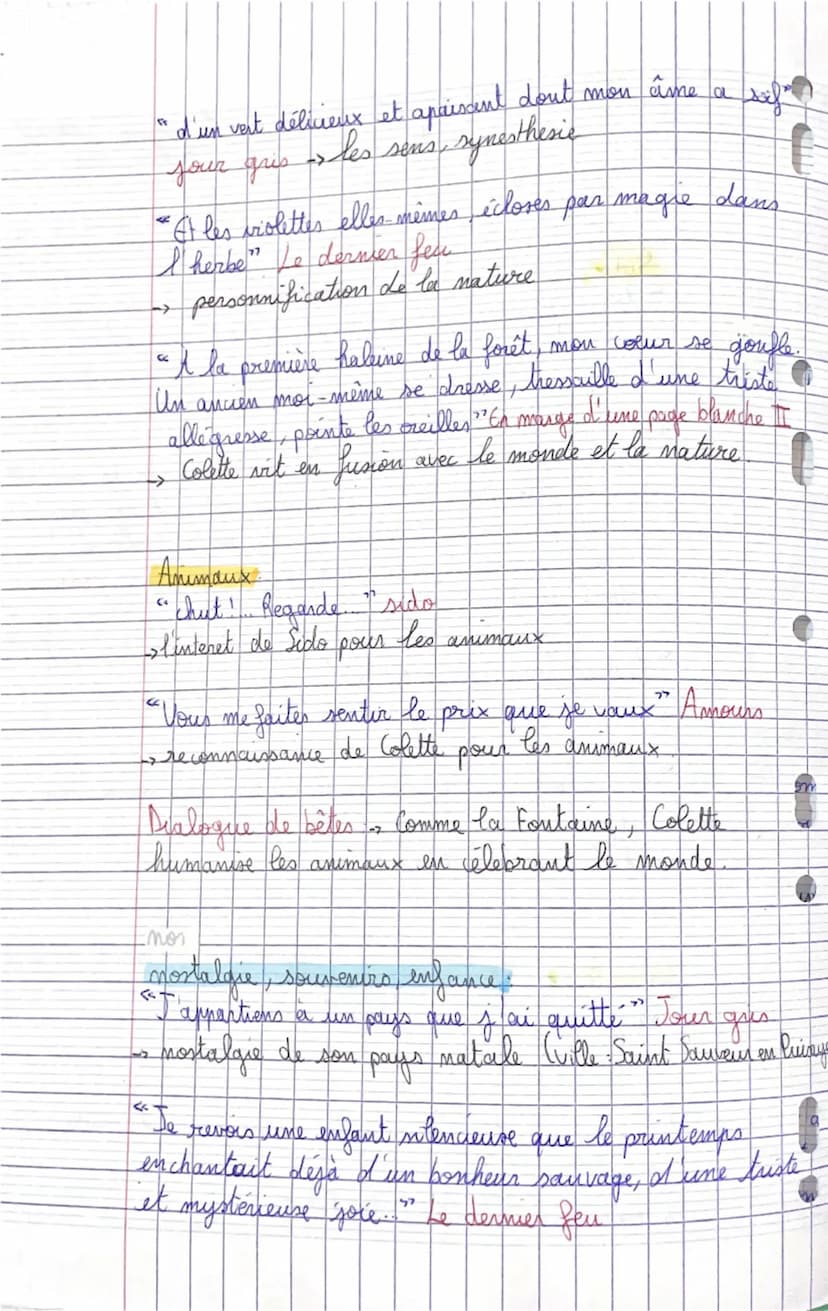 "d'un vert délicieux et apaisant dont mon âme a soif"
Jour gris -> les sens, synesthesie
"Et les violettes elles-mêmes, écloses par magie dans
l'herbe" Le dernier feu
-> personnification de la nature
"A la première haleine de la forêt, mon coeur se gonfle.
Un ancien moi-même se dresse, tressaille d'une triste
allégresse, pointe les oreilles" En marge d'une page blanche II
-> Colette vit en fusion avec le monde et la nature.
Animaux
"chut!... Regarde..." sido
-> l'interet de Sido pour les animaux
"Vous me faites sentir le prix que je vaux" Amours
-> reconnaissance de Colette pour les animaux.
Dialogue de bêtes -> Comme la Fontaine, Colette
humanise les animaux en célebrant le monde.
nos
nostalgie, souvenirs, enfance:
"J'appartiens à un pays que j'ai quitté" Jour gris
-> nostalgie de son pays natale (ville: Saint Sauveur en Puisaye
"Je revois une enfant silencieuse que le printemps
enchantait déjà d'un bonheur sauvage, d'une triste
et mystérieuse joie..." Le dernier feu